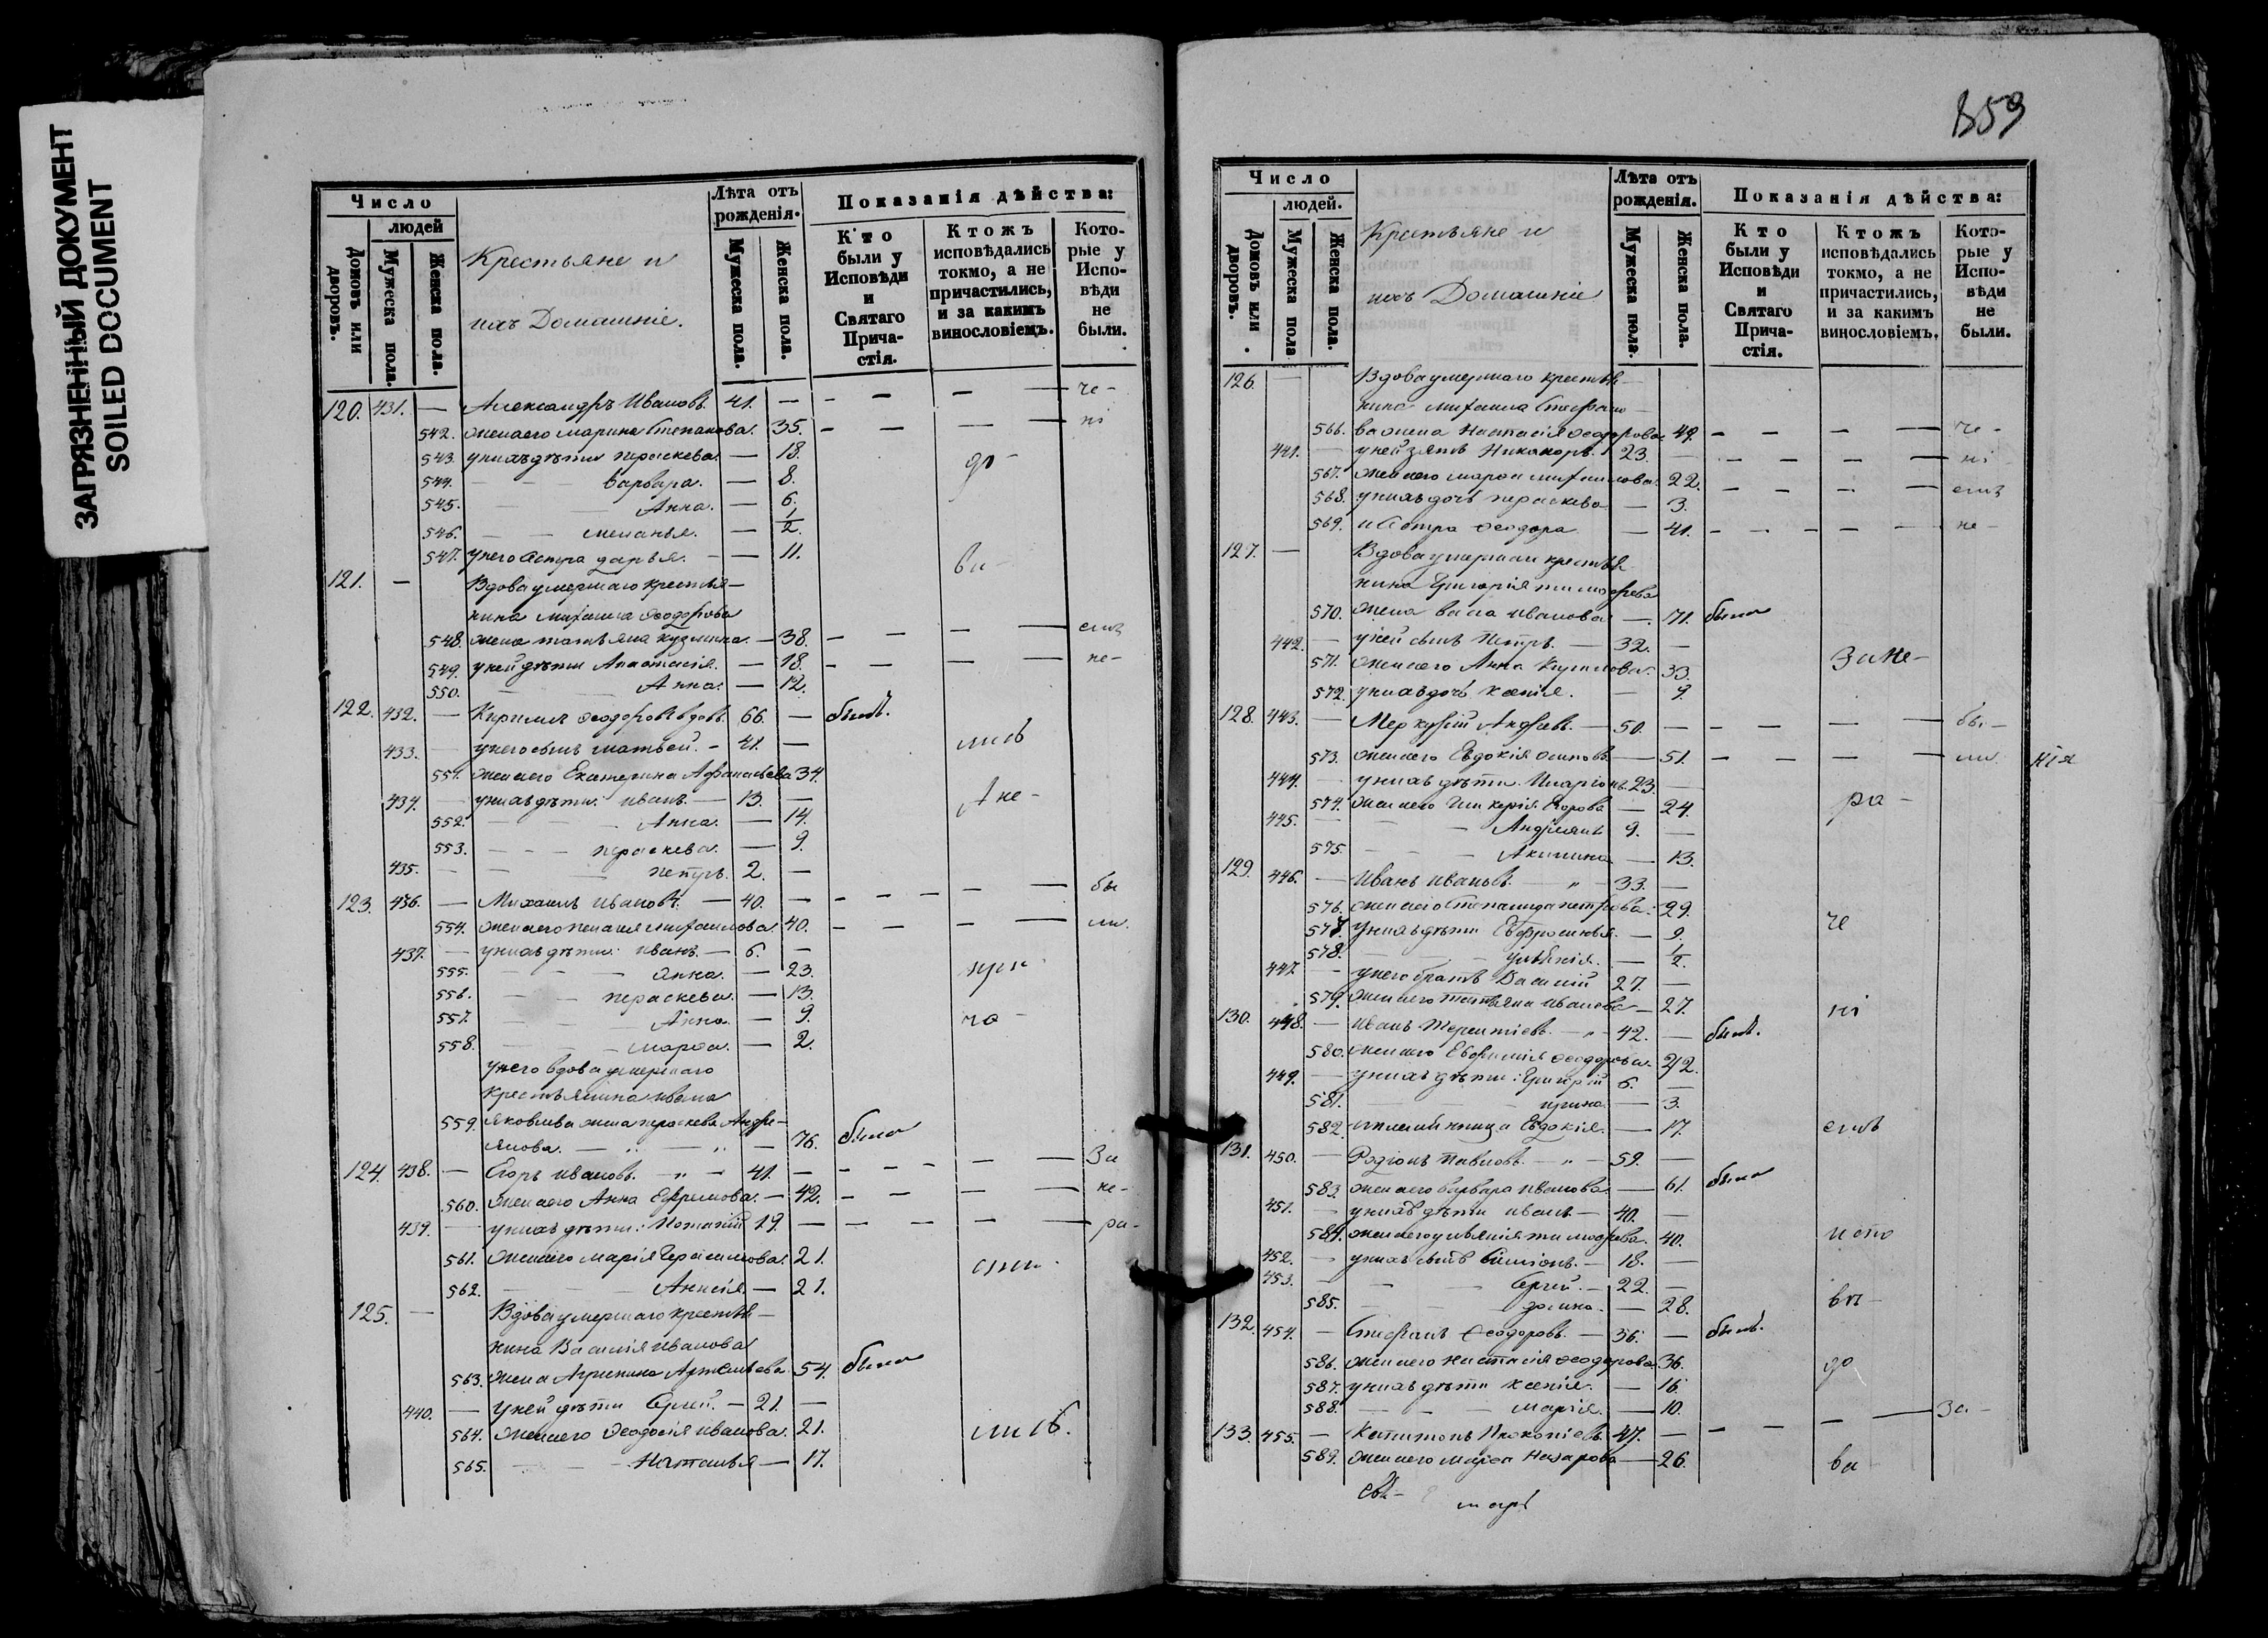 ЗАГРЯЗНЕННЫЙ ДОКУМЕНТ
SOILED DOCUMENT
Число
людей
Домовъ или дворовъ.
Мужеска пола.
Женска пола.
Крестьяне и
ихъ Домашніе.
Лѣта отъ рожденія.
Мужеска пола.
Женска пола.
Показанія дѣйства:
Кто были у Исповѣди и Святаго Причастія.
Ктожъ исповѣдались токмо, а не причастились, и за какимъ винословіемъ.
Которые у Исповѣди не были.
120. 431. — Александръ Ивановъ. 41. — — — — — че-
542. жена его Марина Степанова. 35. — — — — ні
543. у нихъ дѣти Параскева. — 18. до-
544. — — Варвара. — 8.
545. — — Анна. — 6.
546. — — Меланья. — 1/2.
547. у него сестра Дарья. — 11. ва-
121. — Вдова умершаго крестья-
нина Михаила Ѳеодорова
548. жена Татьяна Кузмина. — 38. — — — — емъ
549. у ней дѣти Анастасія. — 18. — — — — не-
550. — — Анна. — 12.
122. 432. — Кирилъ Ѳеодоровъ вдовъ. 66. — былъ.
433. — у него сынъ Матвей. — 41. — лись
551. жена его Екатерина Афанасьева 34.
434. — у нихъ дѣти: Иванъ. — 13. — А не-
552. — — — Анна. — 14.
553. — — — Параскева. — 9.
435. — — — Петръ. 2. —
123. 436. — Михаилъ Ивановъ. — 40. — — — — — бы
554. жена его Пелагея Михаилова. 40. — — — — ли.
437. — у нихъ дѣти: Иванъ. — 6. —
555. — — — Анна. — 23. при-
556. — — Параскева. — 13.
557. — — Анна. — 9. ча-
558. — — — Марѳа. — 2.
у него вдова умершаго
крестьянина Ивана
559. Яковлева жена Параскева Андре-
янова. — — — 76. была
124. 438. — Егоръ Ивановъ. — 41. — — — — — За
560. жена его Анна Ефремова. — 42. — — — — не-
439. — у нихъ дѣти: Потапій 19. — — — — — ра-
561. жена его Марія Герасимова. 21.
562. — — Анисія. — 21.
125. — Вдова умершаго крестья-
нина Василія Иванова
563. жена Агрипина Артемьева 54. была
440. — у ней дѣти Сергій. — 21. —
564. жена его Ѳеодосія Иванова. 21. лись.
565. — — — Наталья — 17.
859
Число
людей.
Домовъ или дворовъ.
Мужеска пола
Женска пола.
Крестьяне и
ихъ Домашніе
Лѣта отъ рожденія.
Мужеска пола.
Женска пола.
Показанія дѣйства:
Кто были у Исповѣди и Святаго Причастія.
Ктожъ исповѣдались токмо, а не причастились, и за какимъ винословіемъ.
Которые у Исповѣди не были.
126. — Вдова умершаго крестья-
нина Михаила Стефано-
566. ва жена Настасія Ѳеодорова 49. — — — — че-
441. — у ней зять Никаноръ. 23. — — — — — ні-
567. жена его Марѳа Михаилова. 22. — — — — емъ
568. у нихъ дочь Параскева — 3.
569. и сестра Ѳеодора — 41. — — — — не-
127. — Вдова умершаго крестья-
нина Григорія Тимофѣева
570. жена Васса Иванова — 71. была
442. — у ней сынъ Петръ. — 32. —
571. жена его Анна Кирилова. 33. за не-
572. у нихъ дочь Ксенія. — 9.
128. 443. — Меркурій Андреевъ. — 50. — — — — — бы-
573. жена его Евдокія Осипова. — 51. — — — — ли. нія
444. — у нихъ дѣти. Иларіонъ. 23. —
574. жена его Гликерія Егорова — 24. ра-
445. — — — Андріянъ 9. —
575. — — — Акилина — 13.
129. 446. — Иванъ Ивановъ. — 33. —
576. жена его Степанида Петрова. 29. че
577. у нихъ дѣти Евфросинья. — 9.
578. — — — Ульянія. — 1/2.
447. — у него братъ Василій 27. —
579. жена его Татьяна Иванова — 27. ні
130. 448. — Иванъ Терентіевъ. — 42. — былъ.
580. жена его Евфимія Ѳеодорова. 42.
449. — у нихъ дѣти: Григорій 6. —
581. — — — Ирина — 3.
582. и племянница Евдокія. — 17. емъ
131. 450. — Родіонъ Павловъ. — 59. —
583. жена его Варвара Иванова. — 61. была
451. — у нихъ дѣти Иванъ — 40. —
584. жена его Ульянія Тимофѣева. 40.
452. — у нихъ сынъ Симіонъ. — 18. —
453. — — — Сергій. — 22. —
585. — — Домна. — 28.
132. 454. — Стефанъ Ѳеодоровъ. — 36. — былъ.
586. жена его Настасія Ѳеодорова 36. до
587. у нихъ дѣти Ксенія. — 16.
588. — — — Марія. — 10.
133. 455. — Капитонъ Прокопіевъ. 47. — — — — — За-
589. жена его Марѳа Назарова — 26. ва